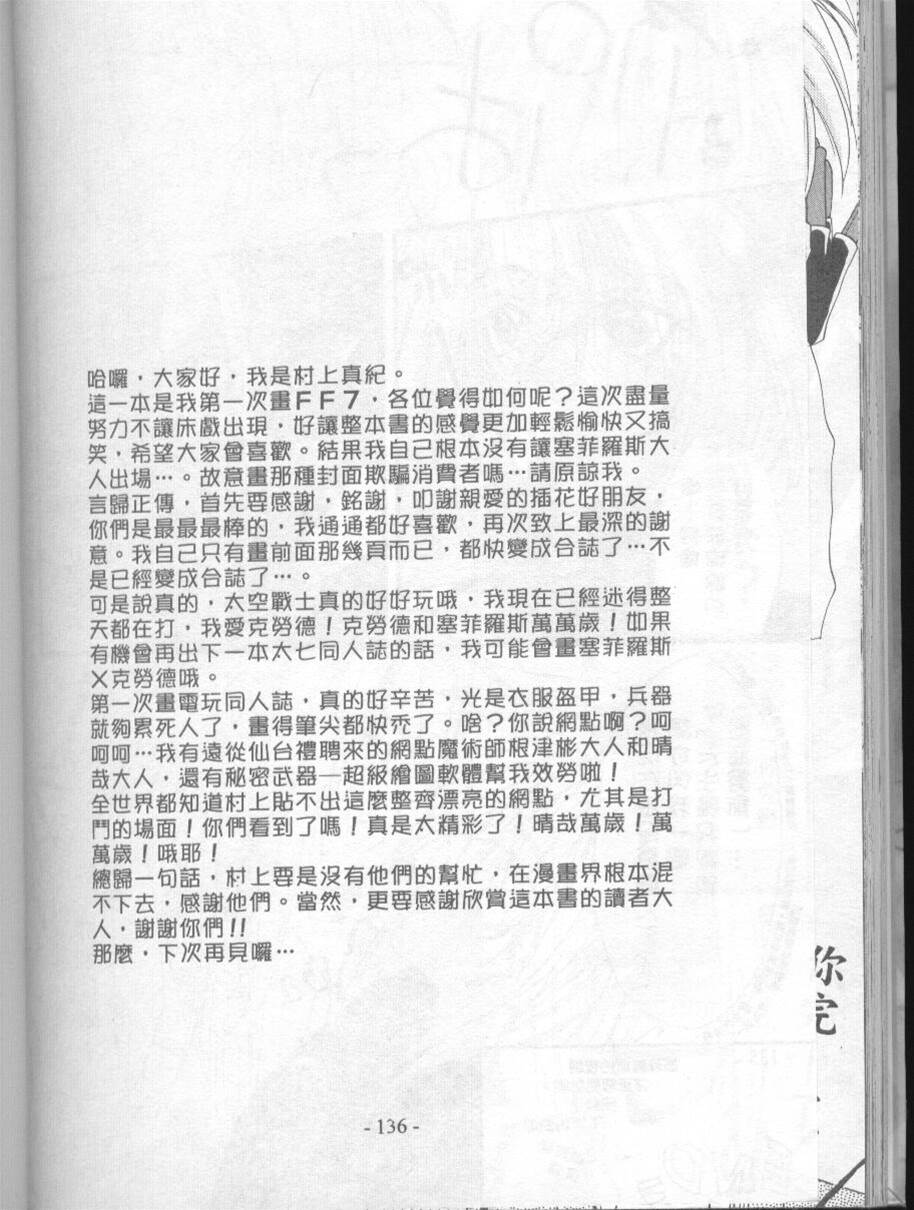 哈囉，大家好，我是村上真紀。
這一本是我第一次畫ＦＦ７，各位覺得如何呢？這次盡量
努力不讓床戲出現，好讓整本書的感覺更加輕鬆愉快又搞
笑，希望大家會喜歡。結果我自己根本沒有讓塞菲羅斯大
人出場…。故意畫那種封面欺騙消費者嗎…請原諒我。
言歸正傳，首先要感謝，銘謝，叩謝親愛的插花好朋友，
你們是最最最棒的，我通通都好喜歡，再次致上最深的謝
意。我自己只有畫前面那幾頁而已，都快變成合誌了…不
是已經變成合誌了…。
可是說真的，太空戰士真的好好玩哦，我現在已經迷得整
天都在打，我愛克勞德！克勞德和塞菲羅斯萬萬歲！如果
有機會再出下一本太七同人誌的話，我可能會畫塞菲羅斯
Ｘ克勞德哦。
第一次畫電玩同人誌，真的好辛苦，光是衣服盔甲，兵器
就夠累死人了，畫得筆尖都快禿了。啥？你說網點啊？呵
呵呵…我有遠從仙台禮聘來的網點魔術師根津彬大人和晴
哉大人，還有秘密武器—超級繪圖軟體幫我效勞啦！
全世界都知道村上貼不出這麼整齊漂亮的網點，尤其是打
鬥的場面！你們看到了嗎！真是太精彩了！晴哉萬歲！萬
萬歲！哦耶！
總歸一句話，村上要是沒有他們的幫忙，在漫畫界根本混
不下去，感謝他們。當然，更要感謝欣賞這本書的讀者大
人，謝謝你們！！
那麼，下次再見囉…
- 136 -
你
完